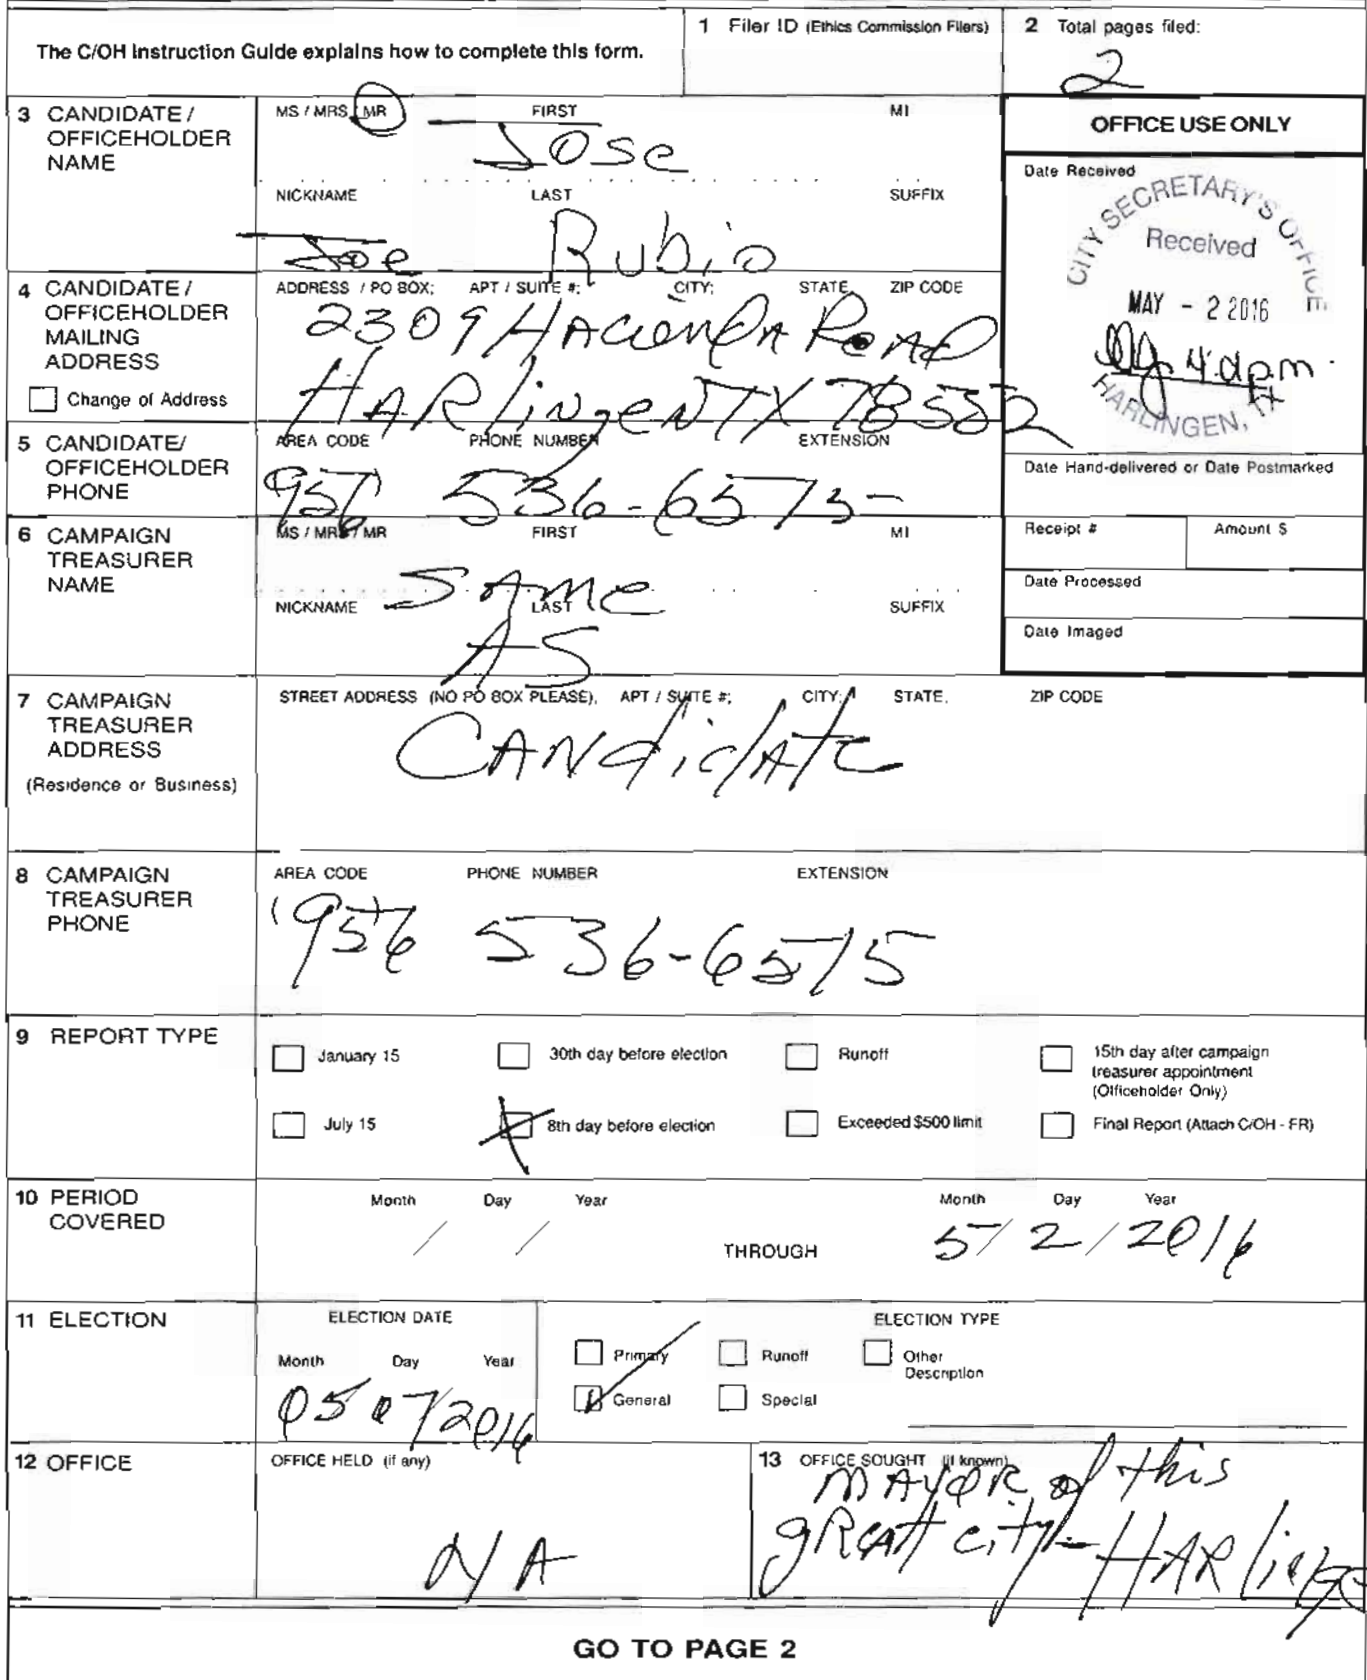 The C/OH Instruction Guide explains how to complete this form.
1 Filer ID (Ethics Commission Filers)
2 Total pages filed:
2
3 CANDIDATE / OFFICEHOLDER NAME
MS / MRS / MR FIRST MI
Jose
NICKNAME LAST SUFFIX
Joe Rubio
OFFICE USE ONLY
Date Received
CITY SECRETARY'S OFFICE
Received
MAY - 2 2016
HARLINGEN, TX
Date Hand-delivered or Date Postmarked
Receipt # Amount $
Date Processed
Date Imaged
4 CANDIDATE / OFFICEHOLDER MAILING ADDRESS
Change of Address
ADDRESS / PO BOX; APT / SUITE #; CITY; STATE, ZIP CODE
2309 HAcienDA RoAD
HARlingen TX 78552
5 CANDIDATE/ OFFICEHOLDER PHONE
AREA CODE PHONE NUMBER EXTENSION
956) 536-6575
6 CAMPAIGN TREASURER NAME
MS / MRS / MR FIRST MI
SAme
NICKNAME LAST SUFFIX
AS
7 CAMPAIGN TREASURER ADDRESS
(Residence or Business)
STREET ADDRESS (NO PO BOX PLEASE), APT / SUITE #; CITY; STATE, ZIP CODE
CANdidAte
8 CAMPAIGN TREASURER PHONE
AREA CODE PHONE NUMBER EXTENSION
(956) 536-6575
9 REPORT TYPE
January 15 30th day before election Runoff 15th day after campaign treasurer appointment (Officeholder Only)
July 15 8th day before election Exceeded $500 limit Final Report (Attach C/OH - FR)
10 PERIOD COVERED
Month Day Year Month Day Year
/ / THROUGH 5/2/2016
11 ELECTION
ELECTION DATE
Month Day Year
05 07/2016
ELECTION TYPE
Primary Runoff Other Description
General Special
12 OFFICE
OFFICE HELD (if any)
N/A
13 OFFICE SOUGHT (if known)
MAYOR of this
gReAt city-HARlinge
GO TO PAGE 2